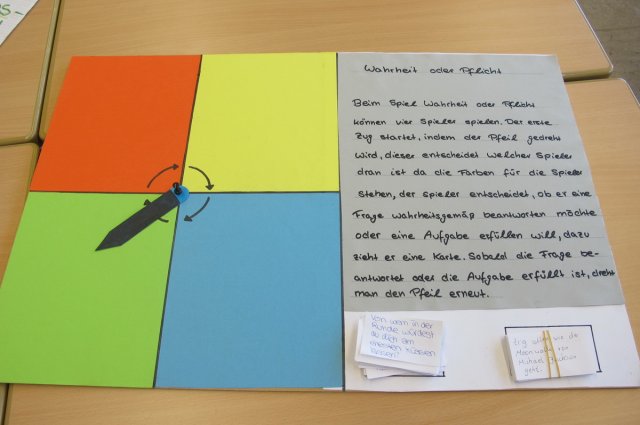 Wahrheit oder Pflicht
Beim Spiel Wahrheit oder Pflicht
können vier Spieler spielen. Der erste
Zug startet, indem der Pfeil gedreht
wird, dieser entscheidet welcher Spieler
dran ist da die Farben für die Spieler
stehen, der spieler entscheidet, ob er eine
Frage wahrheitsgemäß beantworten möchte
oder eine Aufgabe erfüllen will, dazu
zieht er eine Karte. Sobald die Frage be-
antwortet oder die Aufgabe erfüllt ist, dreht
man den Pfeil erneut.
Von wem in der
Runde würdest
du dich am
meisten küssen
lassen?
wie der
Moonwalk von
Michael Jackson
geht.